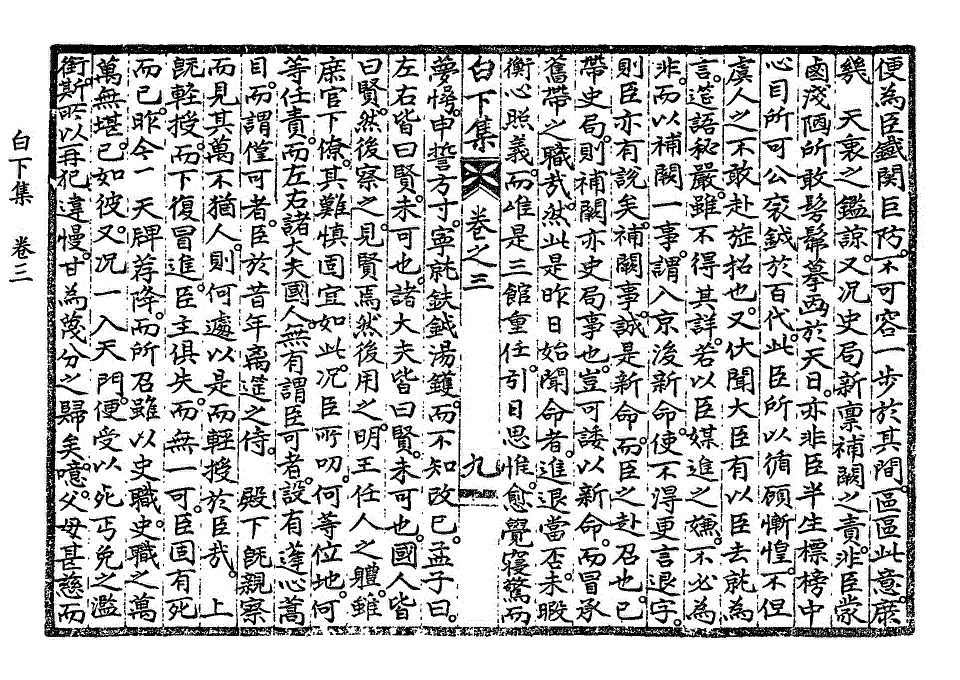 便為臣鐵関巨防。不可容一步於其間。區區此意。庶
幾　天衷之鑑諒。又况史局新禀補闕之責。非臣蒙
鹵淺陋所敢髣髴摹画於天日。亦非臣半生標榜中
心目所可公衮鉞於百代。此臣所以循顧慚惶。不但
虞人之不敢赴旌招也。又伏聞大臣有以臣去就為
言。筵語秘嚴。雖不得其詳。若以臣媒進之嫌。不必為
非。而以補闕一事。謂入京後新命。使不得更言退字。
則臣亦有說矣。補闕事。誠是新命。而臣之赴召也。已
帶史局。則補闕亦史局事也。豈可諉以新命。而冒承
舊帶之職哉。然此是昨日始聞命者。進退當否。未暇
衡心照義。而唯是三館重任。引日思惟。愈覺寢驚而
白下集　卷之三　九
夢愕。申誓方寸。寧就鈇鉞湯鑊。而不知改已。孟子曰。
左右皆曰賢。未可也。諸大夫皆曰賢。未可也。國人皆
曰賢。然後察之。見賢焉然後用之。明王任人之軆。雖
庶官下僚。其難慎固宜如此。况臣所叨。何等位地。何
等任責。而左右諸大夫國人。無有謂臣可者。設有蓬心蒿
目。而謂僅可者。臣於昔年离筵之侍。　殿下旣親察
而見其萬不猶人。則何處以是而輕授於臣哉。　上
旣輕授。而下復冒進。臣主俱失。而無一可。臣固有死
而已。昨今一　天牌荐降。而所召雖以史職。史職之萬
萬無堪。已如彼。又况一入天門。便受以死丐免之濫
衘。斯所以再犯違慢。甘為蔑分之歸矣。噫。父母甚慈而
白下集　卷三